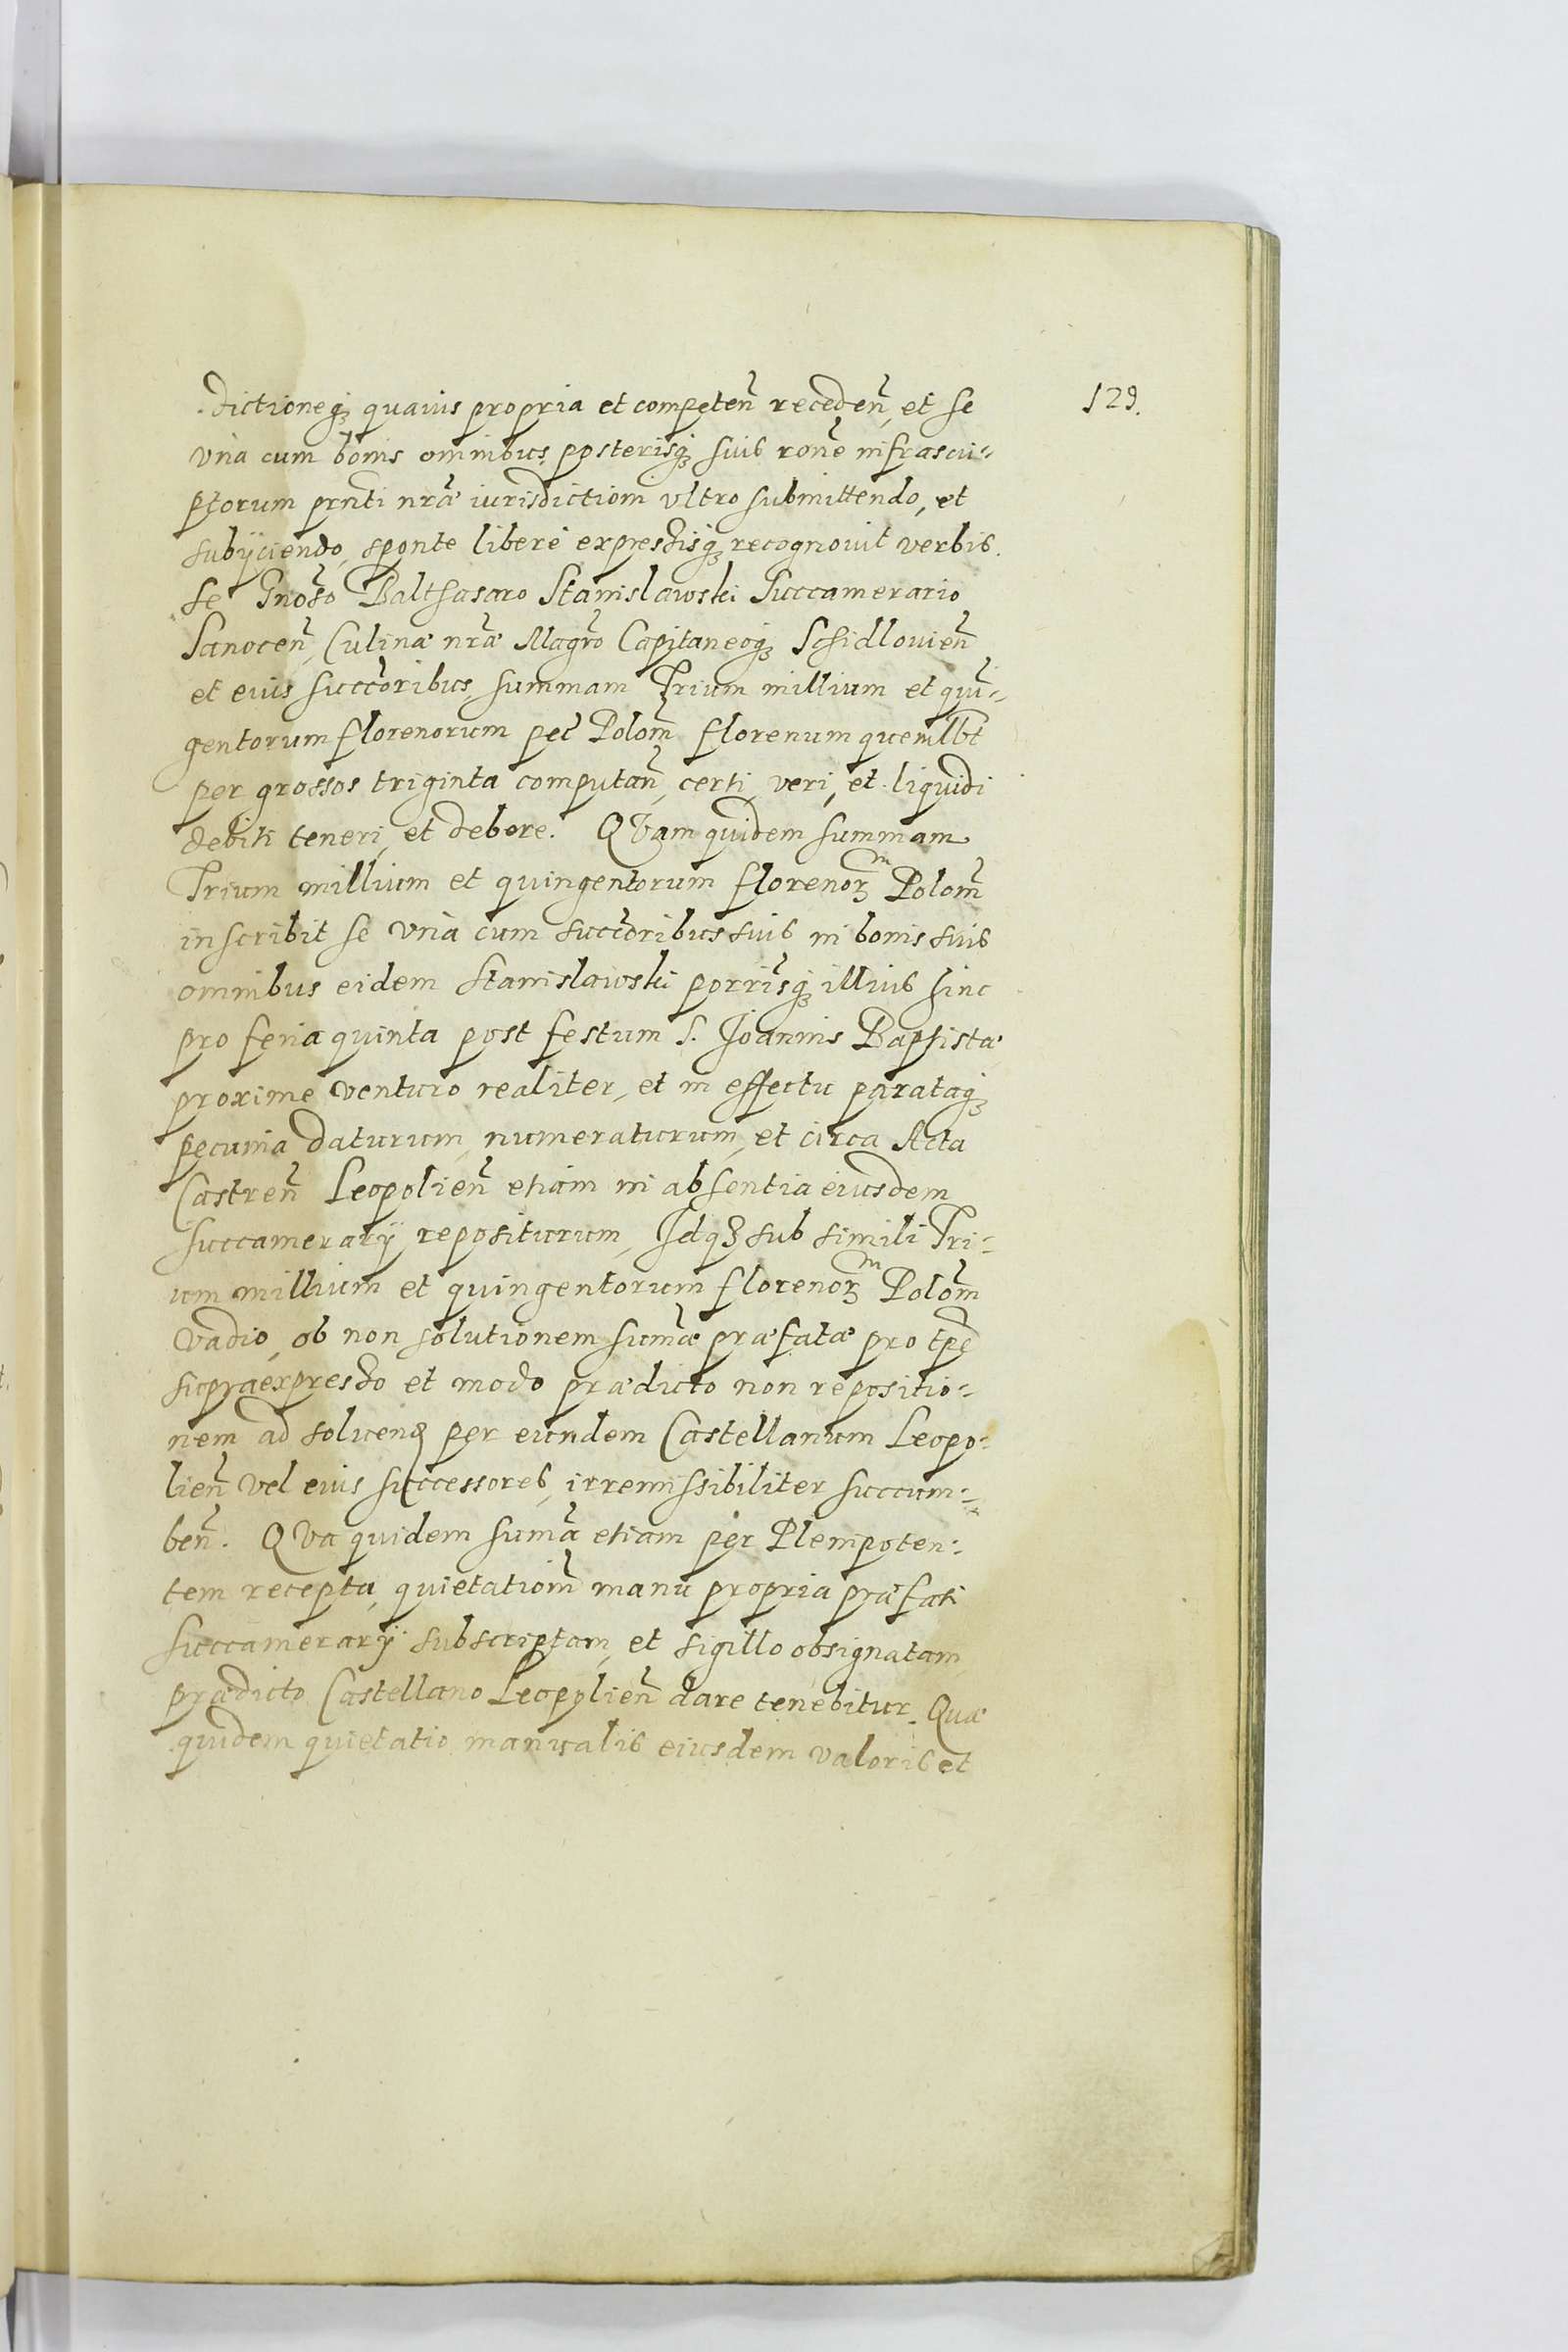 dictioneq₃ quavis propria et competeñ recedeñ, et se
129.
vnà cum bonis omnibus, posterisq₃ suis rone infrascri=
ptorum prnti nrae iurisdictioni vltro submittendo, et
subÿciendo, sponte liberè expressisq₃ recognovit verbis.
se Gnoso Balthasaro Stanislawski Succamerario
Sanoceñ, Culinae nrae Magro Capitaneoq₃ Schidlovieñ
et eius succoribus, summam Trium millium et quin=
gentorum florenorum pec Polom florenum quemlbt
per grossos triginta computañ, certi, veri, et liquidi
debiti teneri, et debere. QVam quidem summam
Trium millium et quingentorum florenorᵐ Polom
inscribit se vnà cum succoribus suis in bonis suis
omnibus eidem Stanislawski porrisq₃ illius hinc
pro feria quinta post festum S. Joannis Baptistae
proxime venturo realiter, et in effectu parataq₃
pecunia daturum, numeraturum, et circa Acta
Castreñ Leopolieñ etiam in absentia eiusdem
Succamerarÿ repositurum, Idq₃ sub simili Tri=
um millium et quingentorum florenorᵐ Polom
vadio, ob non solutionem sumae praefatae pro tpe
supraexpresso et modo praedicto non repositio=
nem ad solvend per eundem Castellanum Leopo=
lieñ vel eius successores, irremissibiliter succum=
beñ. QVa quidem suma etiam per Plenipoten=
tem recepta, quietationem manu propria praefati
Succamerarÿ subscriptam, et sigillo obsignatam
praedicto Castellano Leopolieñ dare tenebitur. Quae
quidem quietatio manualis eiusdem valoris et